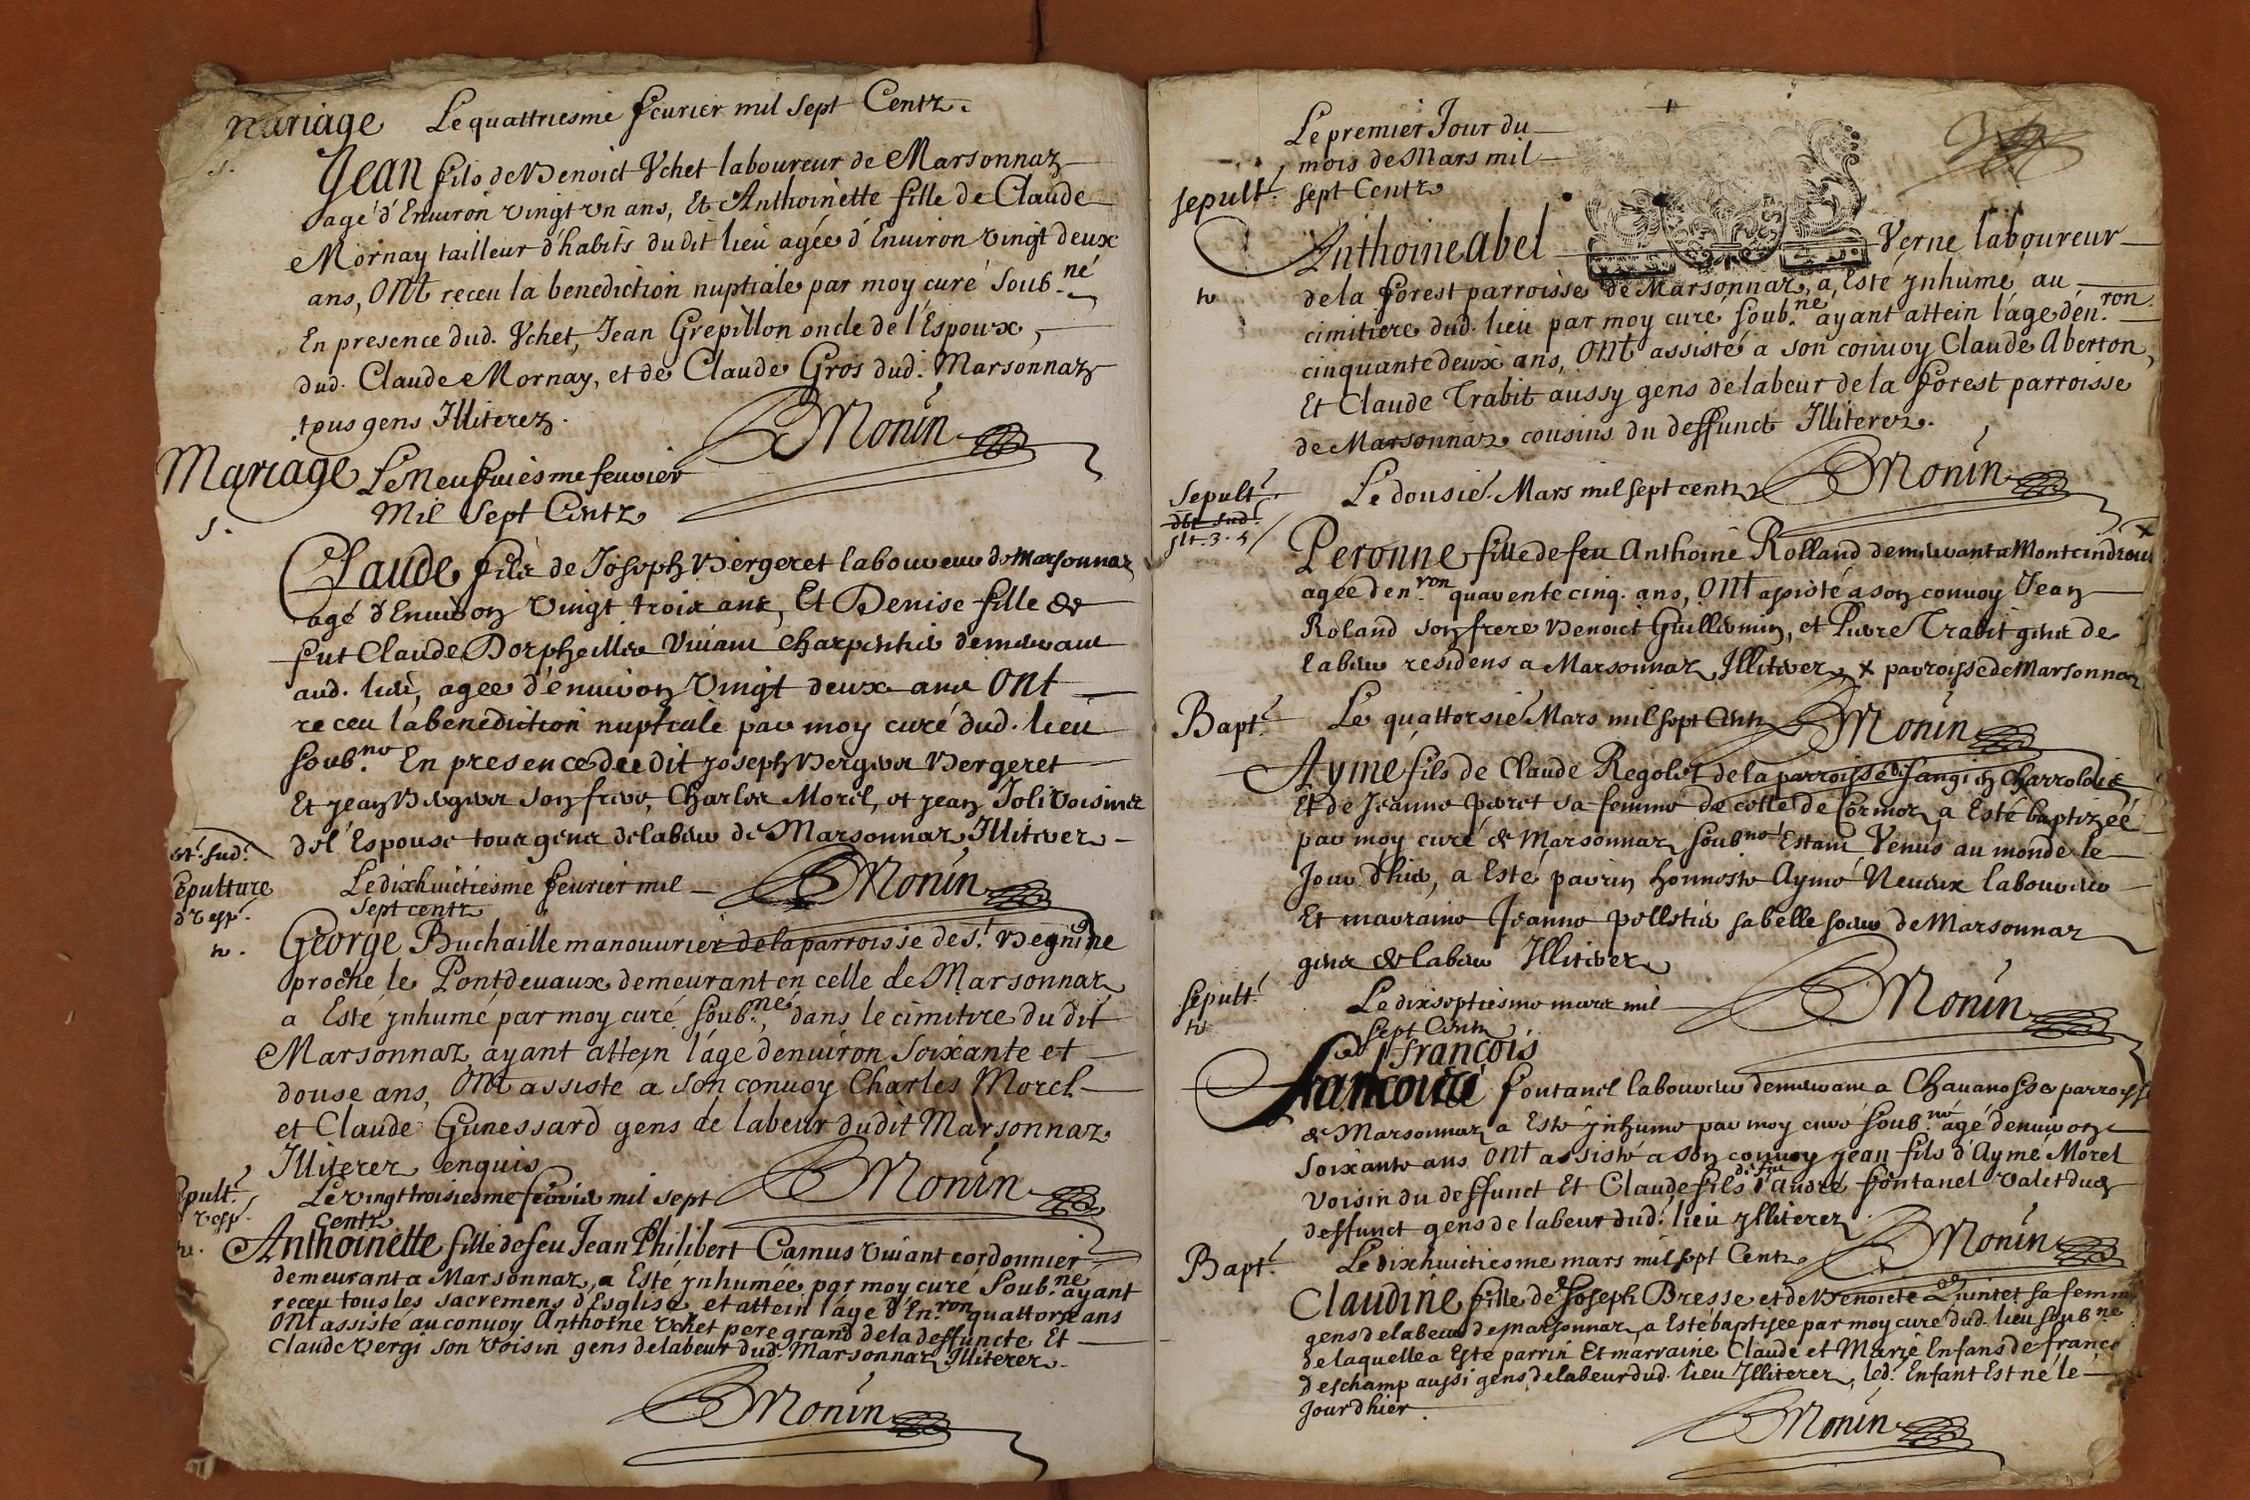 Mariage Le quattriesme feurier mil sept Centz.
Jean fils de Benoict Vchet laboureur de Marsonnaz
agé d'Enuiron vingt vn ans, Et Anthoinette fille de Claude
Mornay tailleur d'habits du dit lieu agée d'Enuiron vingt deux
ans, ONt receu la benediction nuptiale par moy curé soub.né
En presence dud. Vchet, Jean Grepillon oncle de l'Espoux,
dud. Claude Mornay, et de Claude Gros dud. Marsonnaz
tous gens Illiterez.
BMonin
Mariage Le Neufuiesme feurier
Mil Sept Centz
Claude fils de Joseph Bergeret laboureur de Marsonnaz
agé d'Enuiron vingt trois ans, Et Denise fille de
fut Claude Dorpheille viuant charpentier demeurant
aud. lieu, agee d'enuiron vingt deux ans ONt
receu la benediction nuptiale par moy curé dud. lieu
soub.né En presence dudit Joseph Berger Bergeret
Et Jean Berger son frere, Charles Morel, et Jean Joli voisins
de l'Espouse tous gens de labeur de Marsonnaz Illiterez
BMonin
sepulture
Le dixhuictiesme feurier mil
sept centz
George Buchaille manouurier de la parroisse de st. Begnine
proche le Pontdeuaux demeurant en celle de Marsonnaz
a Esté ynhumé par moy curé soub.né, dans le cimitire du dit
Marsonnaz, ayant attein l'age denuiron soixante et
douse ans, ONt assisté a son conuoy Charles Morel
et Claude Gunessard gens de labeur dudit Marsonnaz
Illiterez enquis
BMonin
Sepult.e Le vingt troisiesme feurier mil sept
centz
Anthoinette fille de feu Jean Philibert Camus viuant cordonnier
demeurant a Marsonnaz, a Esté ynhumée par moy curé soub.né ayant
receu tous les sacremens d'Esglise, et attein l'age d'En.ron quattorse ans
ONt assisté au conuoy Anthoine Vchet pere grand de la deffuncte Et
Claude Vergi son voisin gens de labeur dud. Marsonnaz Illiterez.
BMonin
Le premier Jour du
mois de Mars mil
Sepult.e sept Centz
Anthoine Abel Verne laboureur
de la forest parroisse de Marsonnaz, a Esté ynhumé au
cimitiere dud. lieu par moy curé soub.né ayant attein l'age d'en.ron
cinquante deux ans, ONt assisté a son conuoy Claude Aberton,
Et Claude Trabit aussy gens de labeur de la forest parroisse
de Marsonnaz cousins du deffunct Illiterez.
BMonin
Sepult.e Le dousié. Mars mil sept centz
Peronne fille de feu Anthoine Rolland demeurant a Montcindroux
agée d'en.ron quarente cinq. ans, ONt assisté a son conuoy Jean
Roland son frere Benoict Guillermin, et Pierre Trabit gens de
labeur residens a Marsonnaz Illiterez x parroisse de Marsonnaz
BMonin
Bapt.e Le quattorsié Mars mil sept Centz
Aymé fils de Claude Regolet de la parroisse de sangi en Charrolois
Et de Jeanne peret sa femme de celle de Cormoz, a Esté baptizéé
par moy curé de Marsonnaz soub.né Estant Venus au monde le
Jour d'hier, a Esté parrin honneste Aymé Neueux laboureur
Et marraine Jeanne pelletier sa belle soeur de Marsonnaz
gens de labeur Illiterez
BMonin
Sepult.e Le dixseptiesme mars mil
sept Centz
françois
Fontanel laboureur demeurant a Chauanosse parroisse
de Marsonnaz a Esté ynhumé par moy curé soub.né agé d'enuiron
soixante ans ONt assisté a son conuoy Jean fils d'Aymé Morel
voisin du deffunct Et Claude fils de feu d'André fontanel valet dud.
deffunct gens de labeur dud. lieu Illiterez
BMonin
Bapt.e Le dixhuictiesme mars mil sept Centz
Claudine fille de Joseph Bresse et de Benoiete Quintet sa femme
gens de labeur de Marsonnaz, a Esté baptisée par moy curé dud. lieu soub.né
de laquelle a Esté parrin Et marraine Claude et Marie Enfans de france
Deschamp aussi gens de labeur dud. lieu Illiterez, led. Enfant Est né le
Jour d'hier.
BMonin